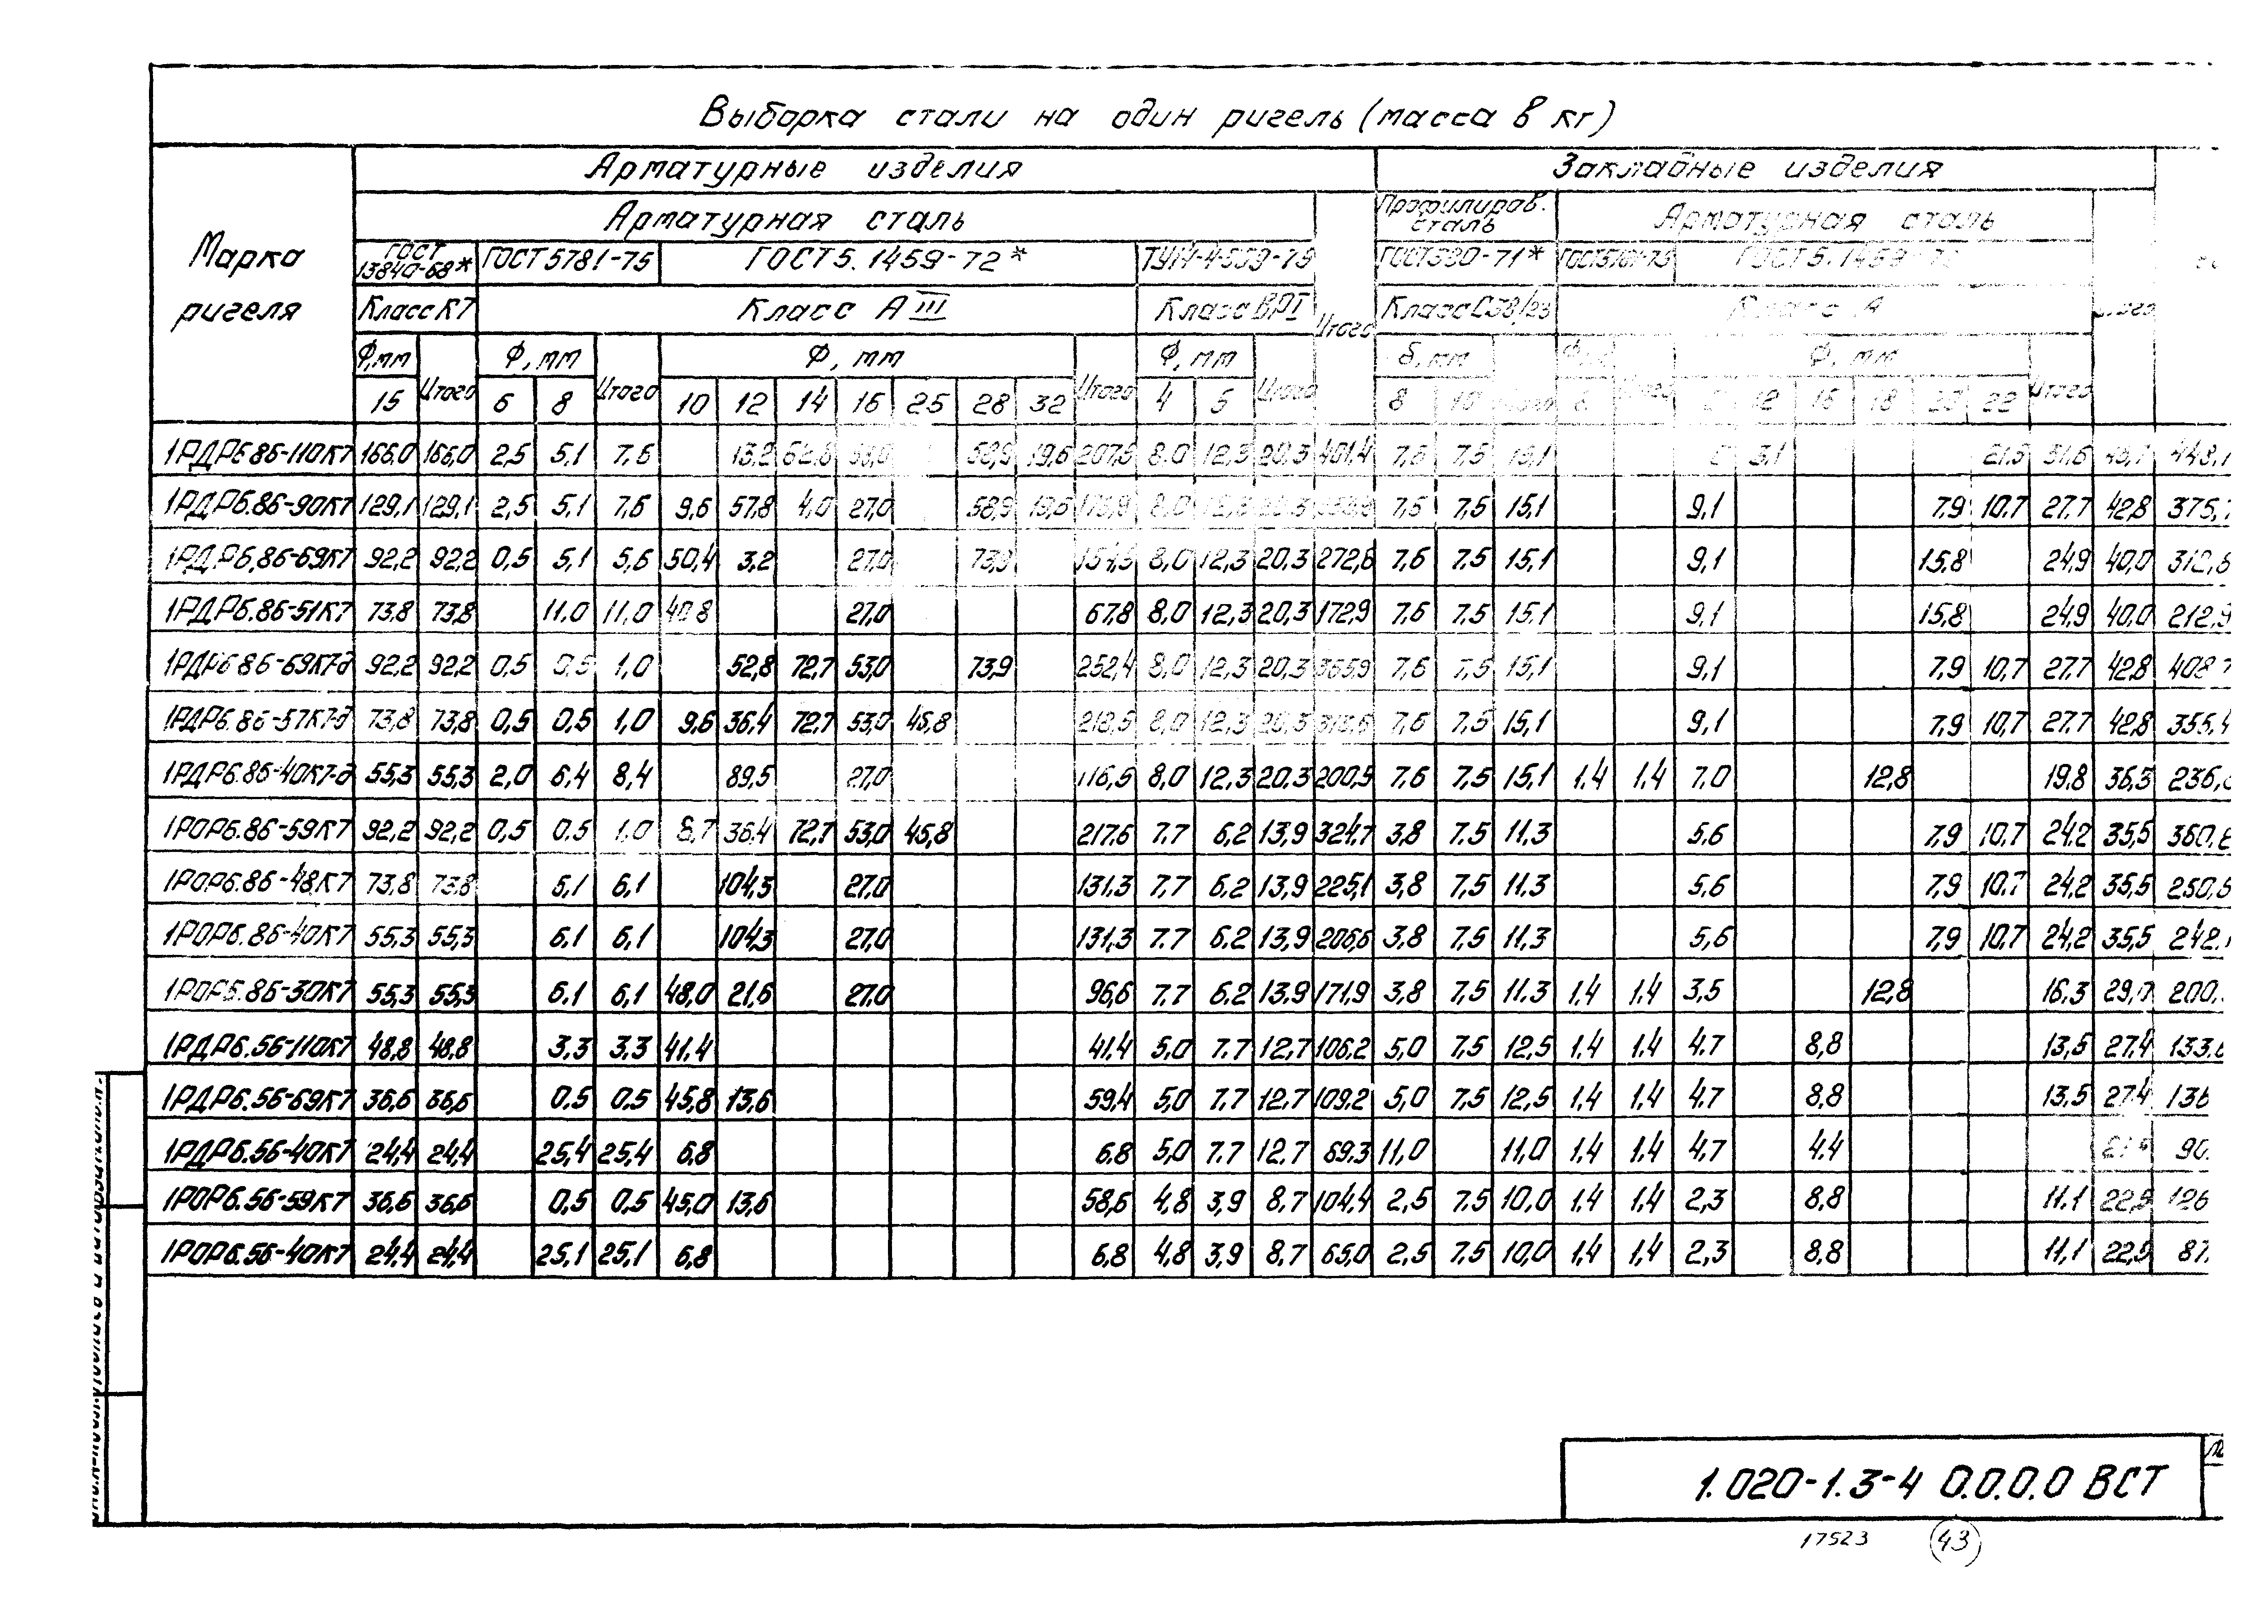 Выборка стали на один ригель (масса в кг)
Марка ригеля
Арматурные изделия
Закладные изделия
Арматурная сталь
Профилиров. сталь
Арматурная сталь
ГОСТ 13840-68* ГОСТ 5781-75 ГОСТ 5.1459-72* ГОСТ 380-71*
Класс К7 Класс АIII Класс ВРI Итого Класс С38/23 Класс А Итого
Ф,мм Итого Ф, мм Итого Ф, мм Итого Ф, мм Итого δ, мм Ф, мм Итого
15 6 8 10 12 14 16 25 28 32 4 5 8 10 12 16 18 20 22
1РДР6.86-110К7 166,0 166,0 2,5 5,1 7,6 13,2 62,8 53,0 58,9 19,6 207,5 8,0 12,3 20,3 401,4 7,6 7,5 15,1 21,5 31,6
1РДР6.86-90К7 129,1 129,1 2,5 5,1 7,6 9,6 57,8 4,0 27,0 58,9 19,6 8,0 12,3 20,3 7,6 7,5 15,1 9,1 7,9 10,7 27,7 42,8
1РДР6.86-69К7 92,2 92,2 0,5 5,1 5,6 50,4 3,2 27,0 73,9 154,5 8,0 12,3 20,3 272,6 7,6 7,5 15,1 9,1 15,8 24,9 40,0 312,6
1РДР6.86-51К7 73,8 73,8 11,0 11,0 40,8 27,0 67,8 8,0 12,3 20,3 172,9 7,6 7,5 15,1 9,1 15,8 24,9 40,0 212,9
1РДР6.86-69К7-д 92,2 92,2 0,5 0,5 1,0 52,8 72,7 53,0 73,9 252,4 8,0 12,3 20,3 365,9 7,6 7,5 15,1 9,1 7,9 10,7 27,7 42,8 408,7
1РДР6.86-57К7-д 73,8 73,8 0,5 0,5 1,0 9,6 36,4 72,7 53,0 46,8 218,5 8,0 12,3 20,3 313,6 7,6 7,5 15,1 9,1 7,9 10,7 27,7 42,8 356,4
1РДР6.86-40К7-д 55,3 55,3 2,0 6,4 8,4 89,5 27,0 116,5 8,0 12,3 20,3 200,5 7,6 7,5 15,1 1,4 1,4 7,0 12,8 19,8 36,3
1РОР6.86-59К7 92,2 92,2 0,5 0,5 1,0 8,7 36,4 72,7 53,0 46,8 217,6 7,7 6,2 13,9 324,7 3,8 7,5 11,3 5,6 7,9 10,7 24,2 35,5
1РОР6.86-48К7 73,8 73,8 6,1 6,1 104,3 27,0 131,3 7,7 6,2 13,9 225,1 3,8 7,5 11,3 5,6 7,9 10,7 24,2 35,5
1РОР6.86-40К7 55,3 55,3 6,1 6,1 104,3 27,0 131,3 7,7 6,2 13,9 206,6 3,8 7,5 11,3 5,6 7,9 10,7 24,2 35,5 242,
1РОР6.86-30К7 55,3 55,3 6,1 6,1 48,0 21,6 27,0 96,6 7,7 6,2 13,9 171,9 3,8 7,5 11,3 1,4 1,4 3,5 12,8 16,3 29,0 200,
1РДР6.56-110К7 48,8 48,8 3,3 3,3 41,4 41,4 5,0 7,7 12,7 106,2 5,0 7,5 12,5 1,4 1,4 4,7 8,8 13,5 27,4 133,6
1РДР6.56-69К7 36,6 36,6 0,5 0,5 45,8 13,6 59,4 5,0 7,7 12,7 109,2 5,0 7,5 12,5 1,4 1,4 4,7 8,8 13,5 27,4 136
1РДР6.56-40К7 24,4 24,4 25,4 25,4 6,8 6,8 5,0 7,7 12,7 69,3 11,0 11,0 1,4 1,4 4,7 4,4 90,
1РОР6.56-59К7 36,6 36,6 0,5 0,5 45,0 13,6 58,6 4,8 3,9 8,7 104,4 2,5 7,5 10,0 1,4 1,4 2,3 8,8 11,1 22,5 126
1РОР6.56-40К7 24,4 24,4 25,1 25,1 6,8 6,8 4,8 3,9 8,7 65,0 2,5 7,5 10,0 1,4 1,4 2,3 8,8 11,1 22,5 87,
1.020-1.3-4 0.0.0.0 ВСТ
17523 43